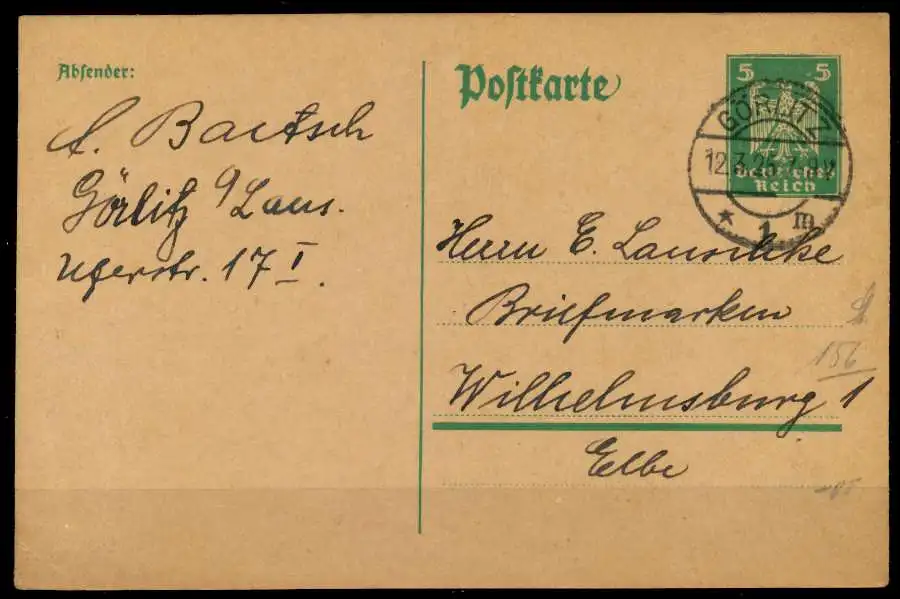 Absender:
A. Bartsch
Görlitz / Laus.
Ugerstr. 17 I.
Postkarte
5 5
Deutsches
Reich
GÖRLITZ
12.3.26.
* 1 m
Herrn E.
Briefmarken
Wilhelmsburg 1
Elbe
156